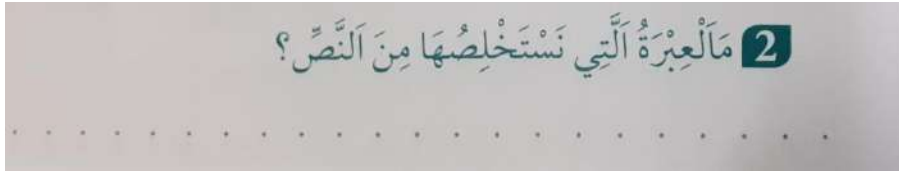 2 مَاَلْعِبْرَةُ اَلَّتِي نَسْتَخْلِصُهَا مِنَ اَلنَّصِّ؟
. . . . . . . . . . . . . . . . . . . . . . . .